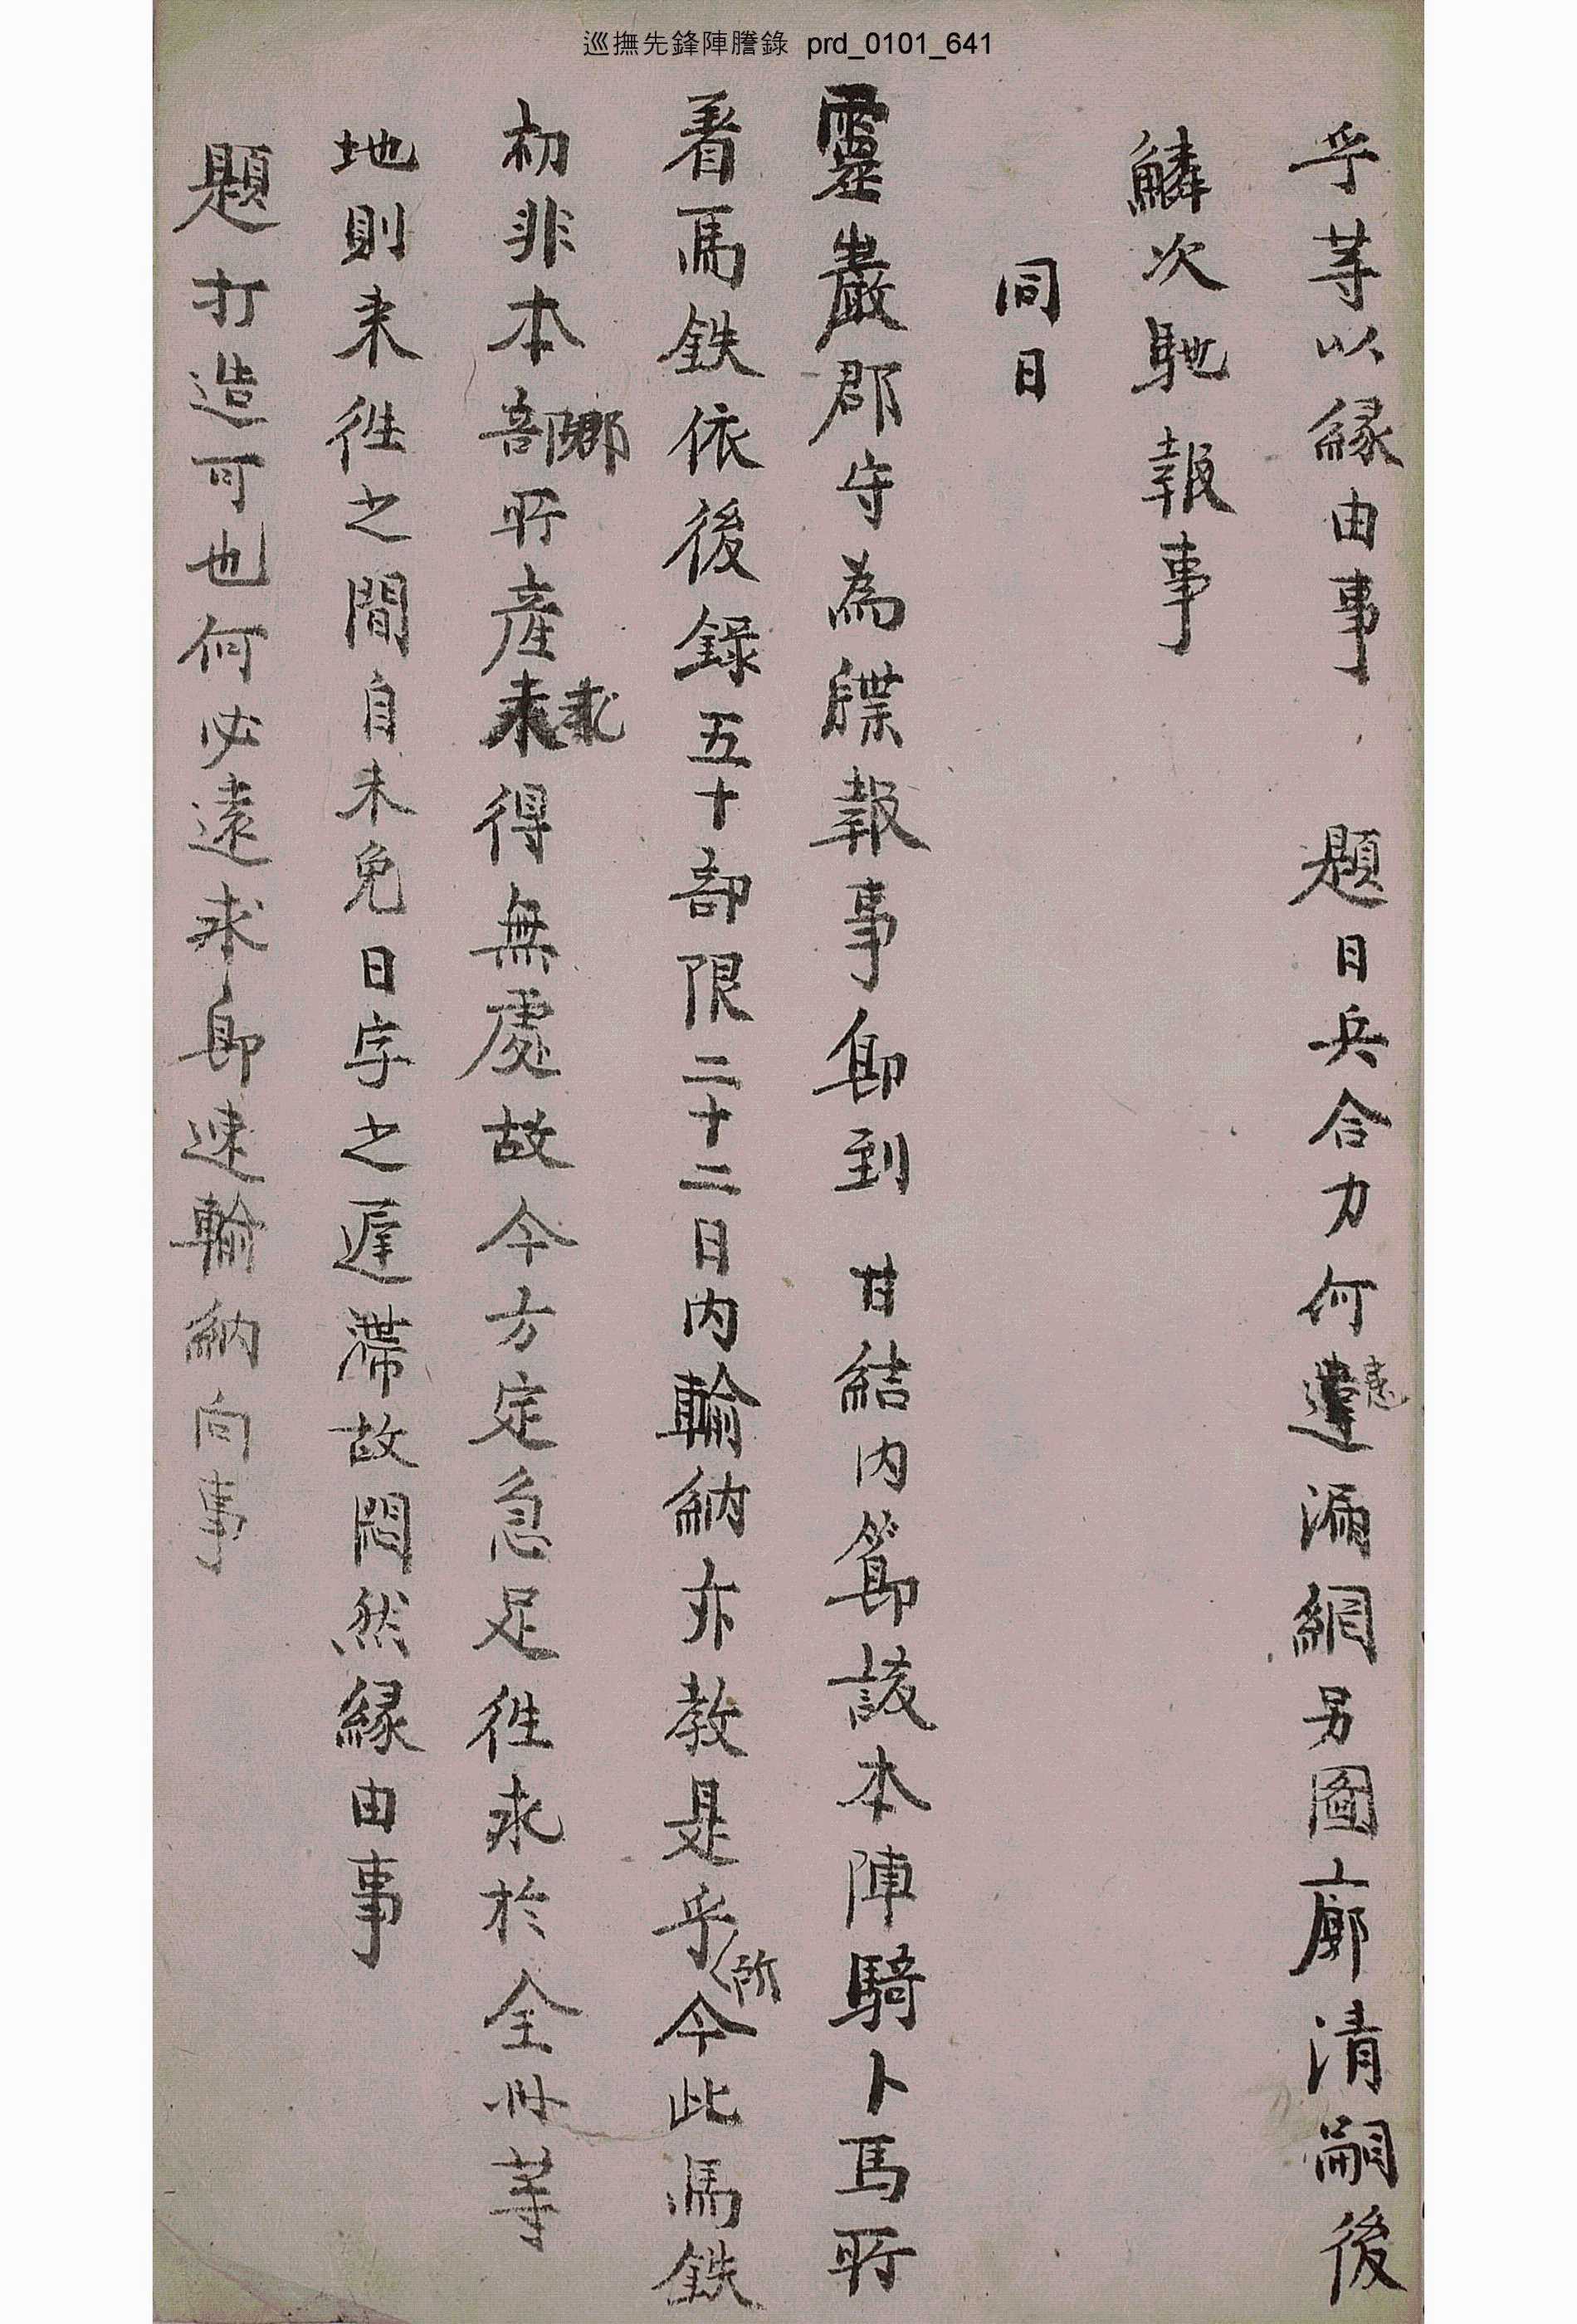 巡撫先鋒陣謄錄 prd_0101_641
乎等以緣由事 題 日兵合力何違慮漏網另圖廓清嗣後
鱗次馳報事
同日
靈巖郡守為牒報事卽到 甘結內節該本陣騎卜馬所
着馬鉄依後錄五十部限二十二日內輸納亦教是乎所今此馬鉄
初非本部郡所產求得無處故今方定急足徃求於全州等
地則来徃之間自未免日字之遲滯故悶然緣由事
題 打造可也何必遠求卽速輸納向事